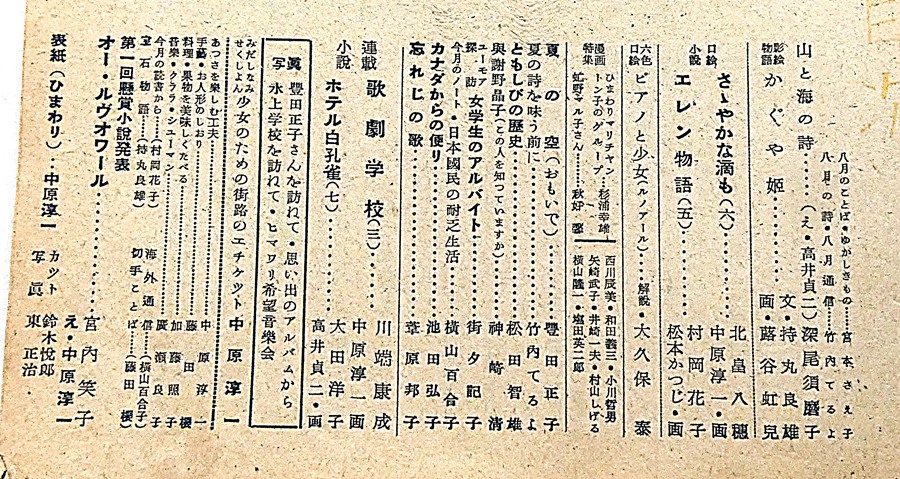 八月のことば・ゆかしきもの……宮本さえ子
八月の詩・八月通信……竹内てるよ
山と海の詩……(え・高井貞二)深尾須磨子
影絵物語 かぐや姫……文・持丸良雄 画・蕗谷虹兒
口絵小説 さゝやかな滴も(六)……北畠八穂 中原淳一・画
エレン物語(五)……村岡花子 松本かつぢ・画
六色口絵 ピアノと少女(ルノアール)……解説・大久保泰
漫画特集 ひまわりマリチャン……杉浦幸雄 西川辰美・和田義三・小川哲男
トン子のグループ 矢崎武子・井崎一夫・村山しげる
虹野マル子さん……秋好馨 横山隆一・塩田英二郎
夏の空(おもいで)……豊田正子
夏の詩を味う前に……竹内てるよ
ともしびの歴史……松田智雄
與謝野晶子(この人を知つていますか)……神崎清
ユーモア探訪 女学生のアルバイト……街夕記子
今月のノート・日本國民の耐乏生活……横山百合子
カナダからの便り……池田弘子
忘れじの歌……章原邦子
連載小説 歌劇学校(三)……川端康成 中原淳一画
ホテル白孔雀(七)……大田洋子 高井貞二・画
写眞 豊田正子さんを訪ねて・思い出のアルバムから
水上学校を訪ねて・ヒマワリ希望音樂会
みだしなみせくしよん 少女のための街路のエチケット 中原淳一
あつさを樂しむ工夫……中原淳一
手藝・お人形のしおり……藤田櫻
料理・果物を美味しくたべる……加藤照子
音樂・クララ・シューマン……廣瀬良子
今月の読書から……(村岡花子) 海外通信……(横山百合子)
宝石物語……(持丸良雄) 切手ことば……(藤田櫻)
第一回懸賞小説発表
オー・ルヴオワール……宮内笑子 え・中原淳一
表紙(ひまわり)……中原淳一 カット 鈴木悦郎 写眞 東正治